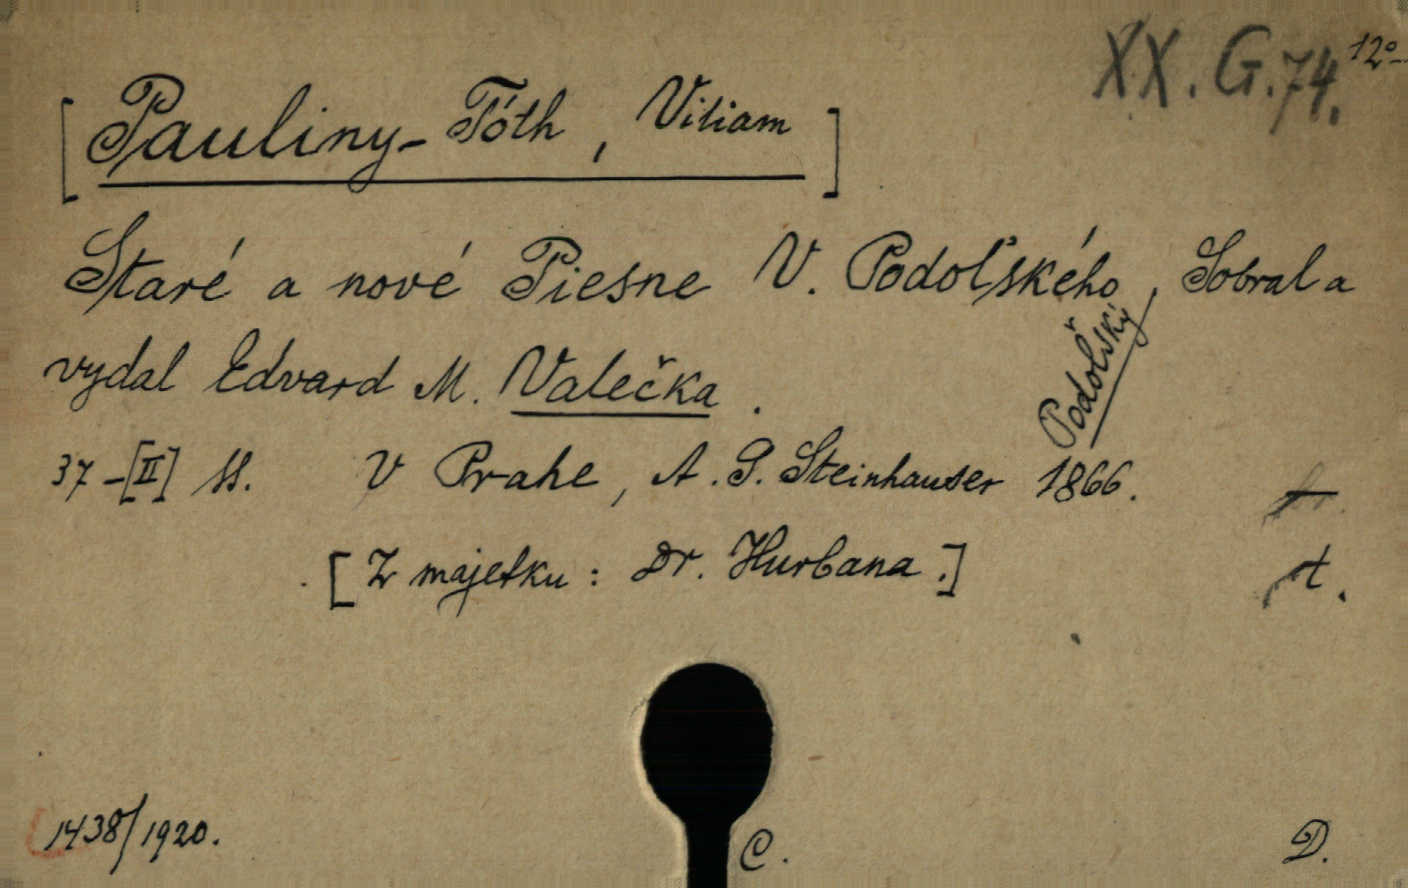 XX. G. 74. 12°
[Pauliny-Tóth, Viliam]
Staré a nové Piesne V. Podoľského, Sobral a
vydal Edvard M. Valečka.
Podoľský
37-[II] ss. V Prahe, A. G. Steinhauser 1866.
[Z majetku: Dr. Hurbana.]
t.
1438/1920.
C.
D.